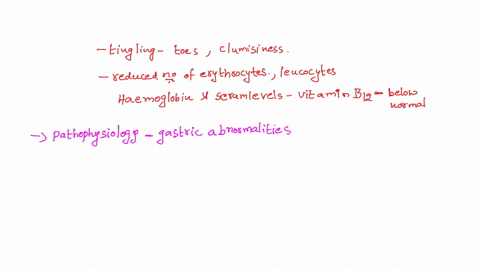 - tingling - toes, clumisiness.
- reduced no of erythrocytes., leucocytes
Haemoglobin & serumlevels - vitamin B12 = below normal
-> Pathophysiology - gastric abnormalities